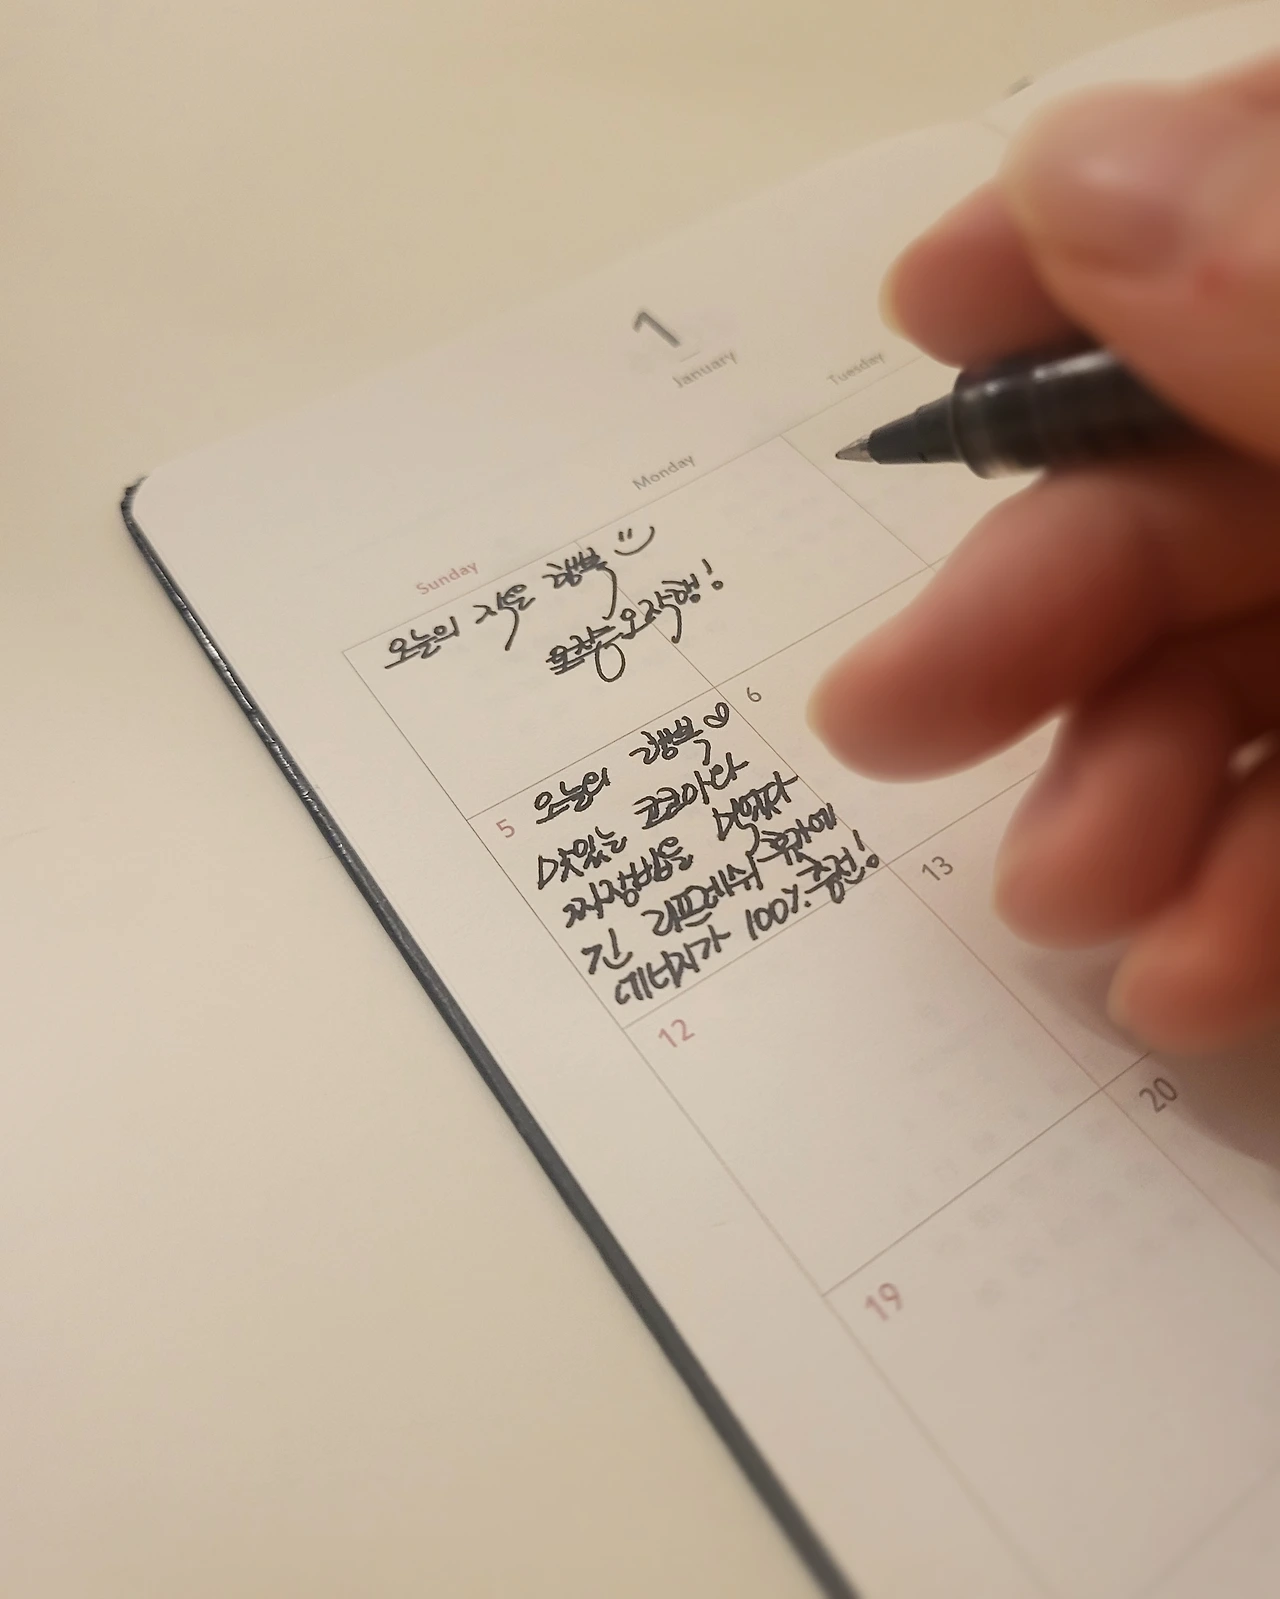 1
January
Sunday
Monday
Tuesday
오늘의 작은 행복
오작행!
5
오늘의 행복♡
맛있는 코코아와
짜장밥을 먹었다
긴 리프레쉬 휴가에
에너지가 100% 충전!
6
12
13
19
20